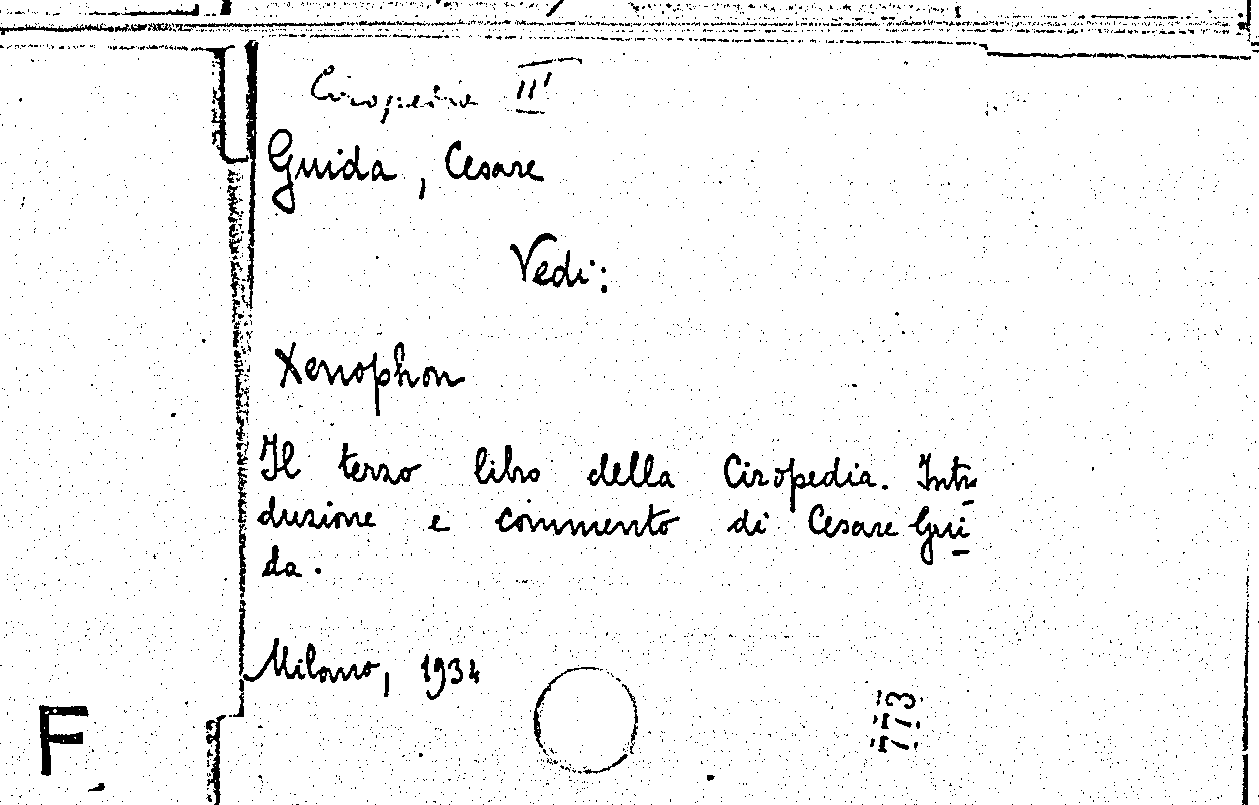 Ciropedia III
Guida, Cesare
Vedi:
Xenophon
Il terzo libro della Ciropedia. Intro-
duzione e commento di Cesare Gui-
da.
Milano, 1934
F
773